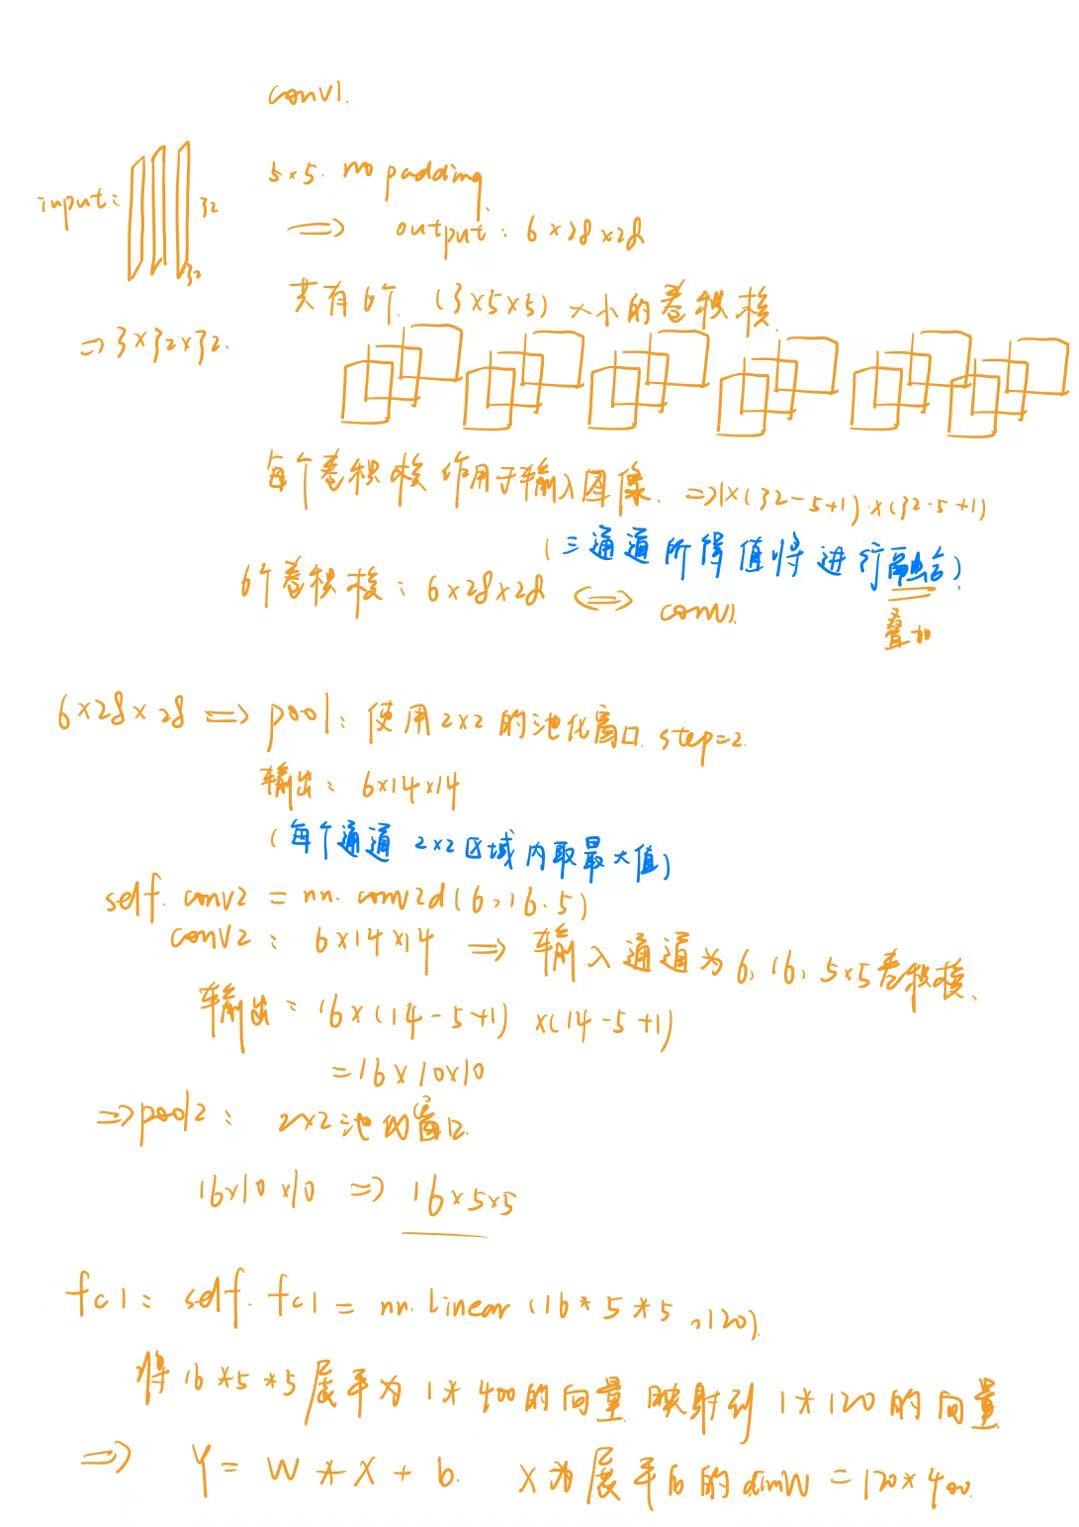 conv1.
5×5. no padding
input: 32
32
⇒ output: 6×28×28
共有6个 (3×5×5) 大小的卷积核
⇒3×32×32.
每个卷积核作用于输入图像. ⇒1×(32-5+1)×(32-5+1)
(三通道所得值将进行融合)
6个卷积核: 6×28×28 ⇔ conv1.
叠加
6×28×28 ⇒ pool: 使用2×2的池化窗口. step=2.
输出: 6×14×14
(每个通道 2×2区域内取最大值)
self. conv2 = nn. conv2d(6,16.5)
conv2: 6×14×14 ⇒ 输入通道为6, 16, 5×5卷积核、
输出: 16×(14-5+1)×(14-5+1)
=16×10×10
⇒pool2: 2×2池化窗口.
16×10×10 ⇒ 16×5×5
fc1: self. fc1 = nn. Linear (16*5*5,120).
将16*5*5展平为1*400的向量 映射到1*120的向量
⇒ Y = W*X+b. X为展平后的 dimW=120×400.